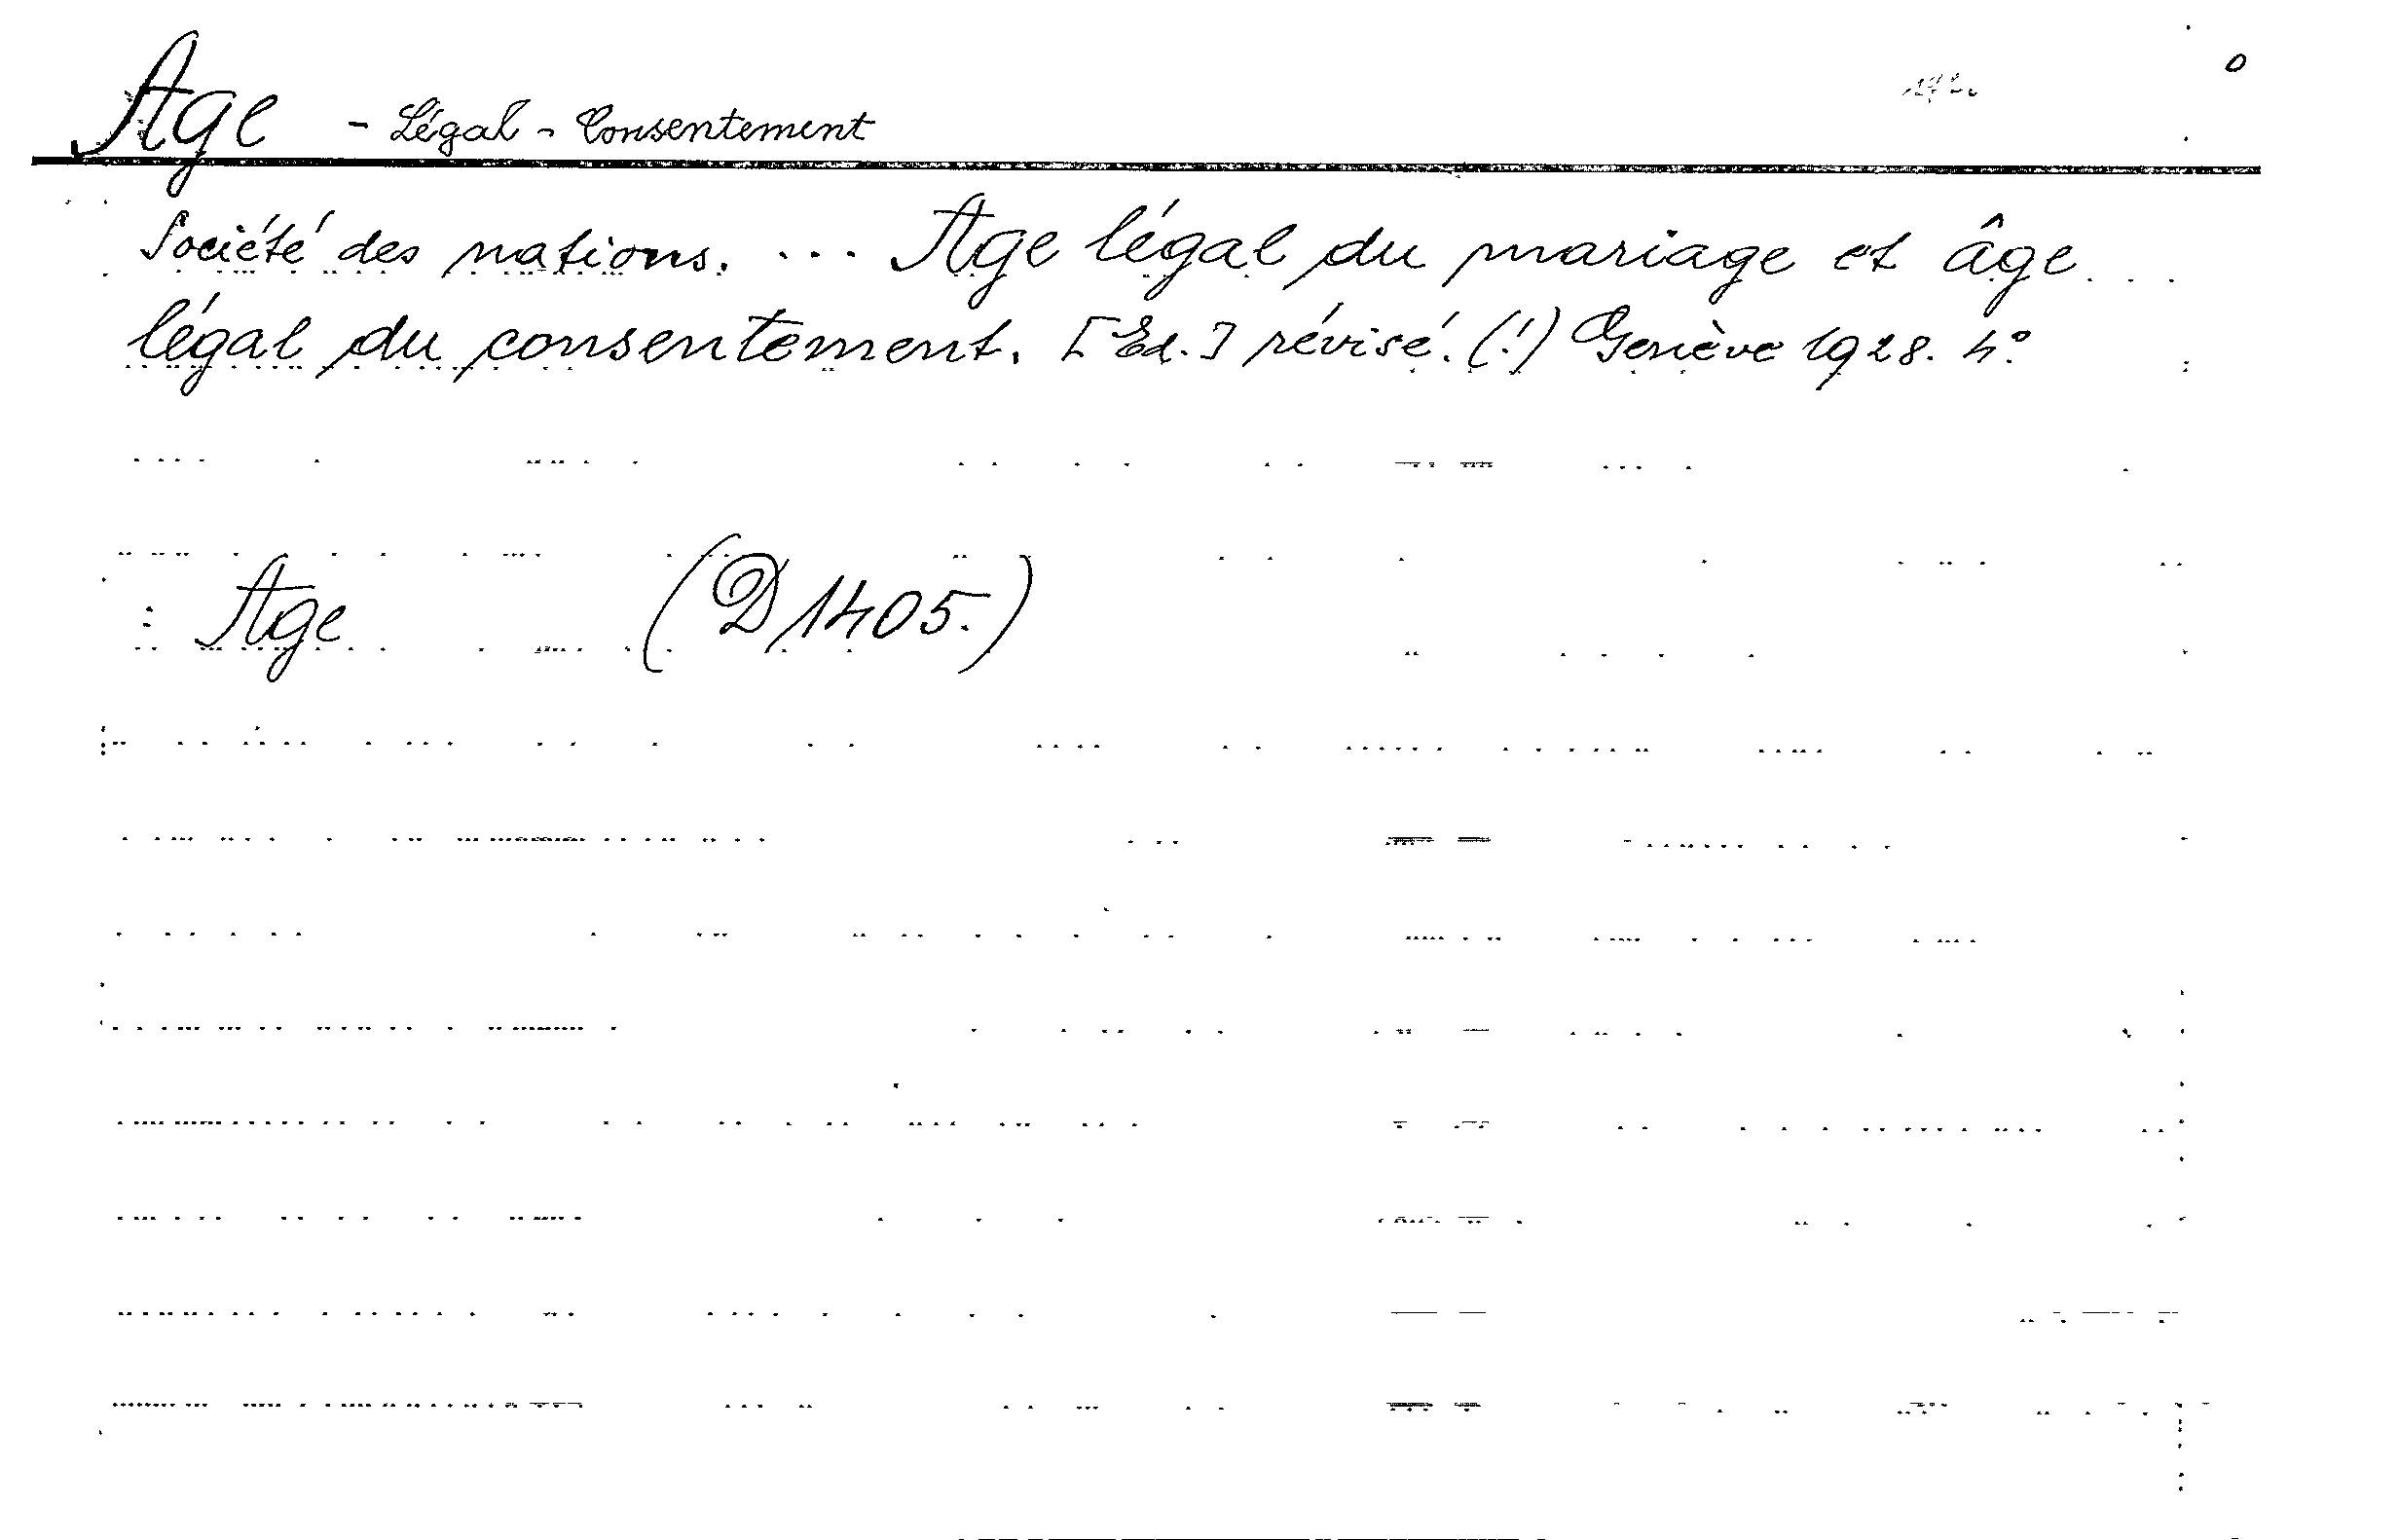 Age - Légal - Consentement
Société des nations. ... Age légal du mariage et âge
légal du consentement. [Ed.] révisé. (!) Genève 1928. 4°.
: Age (D 1405.)